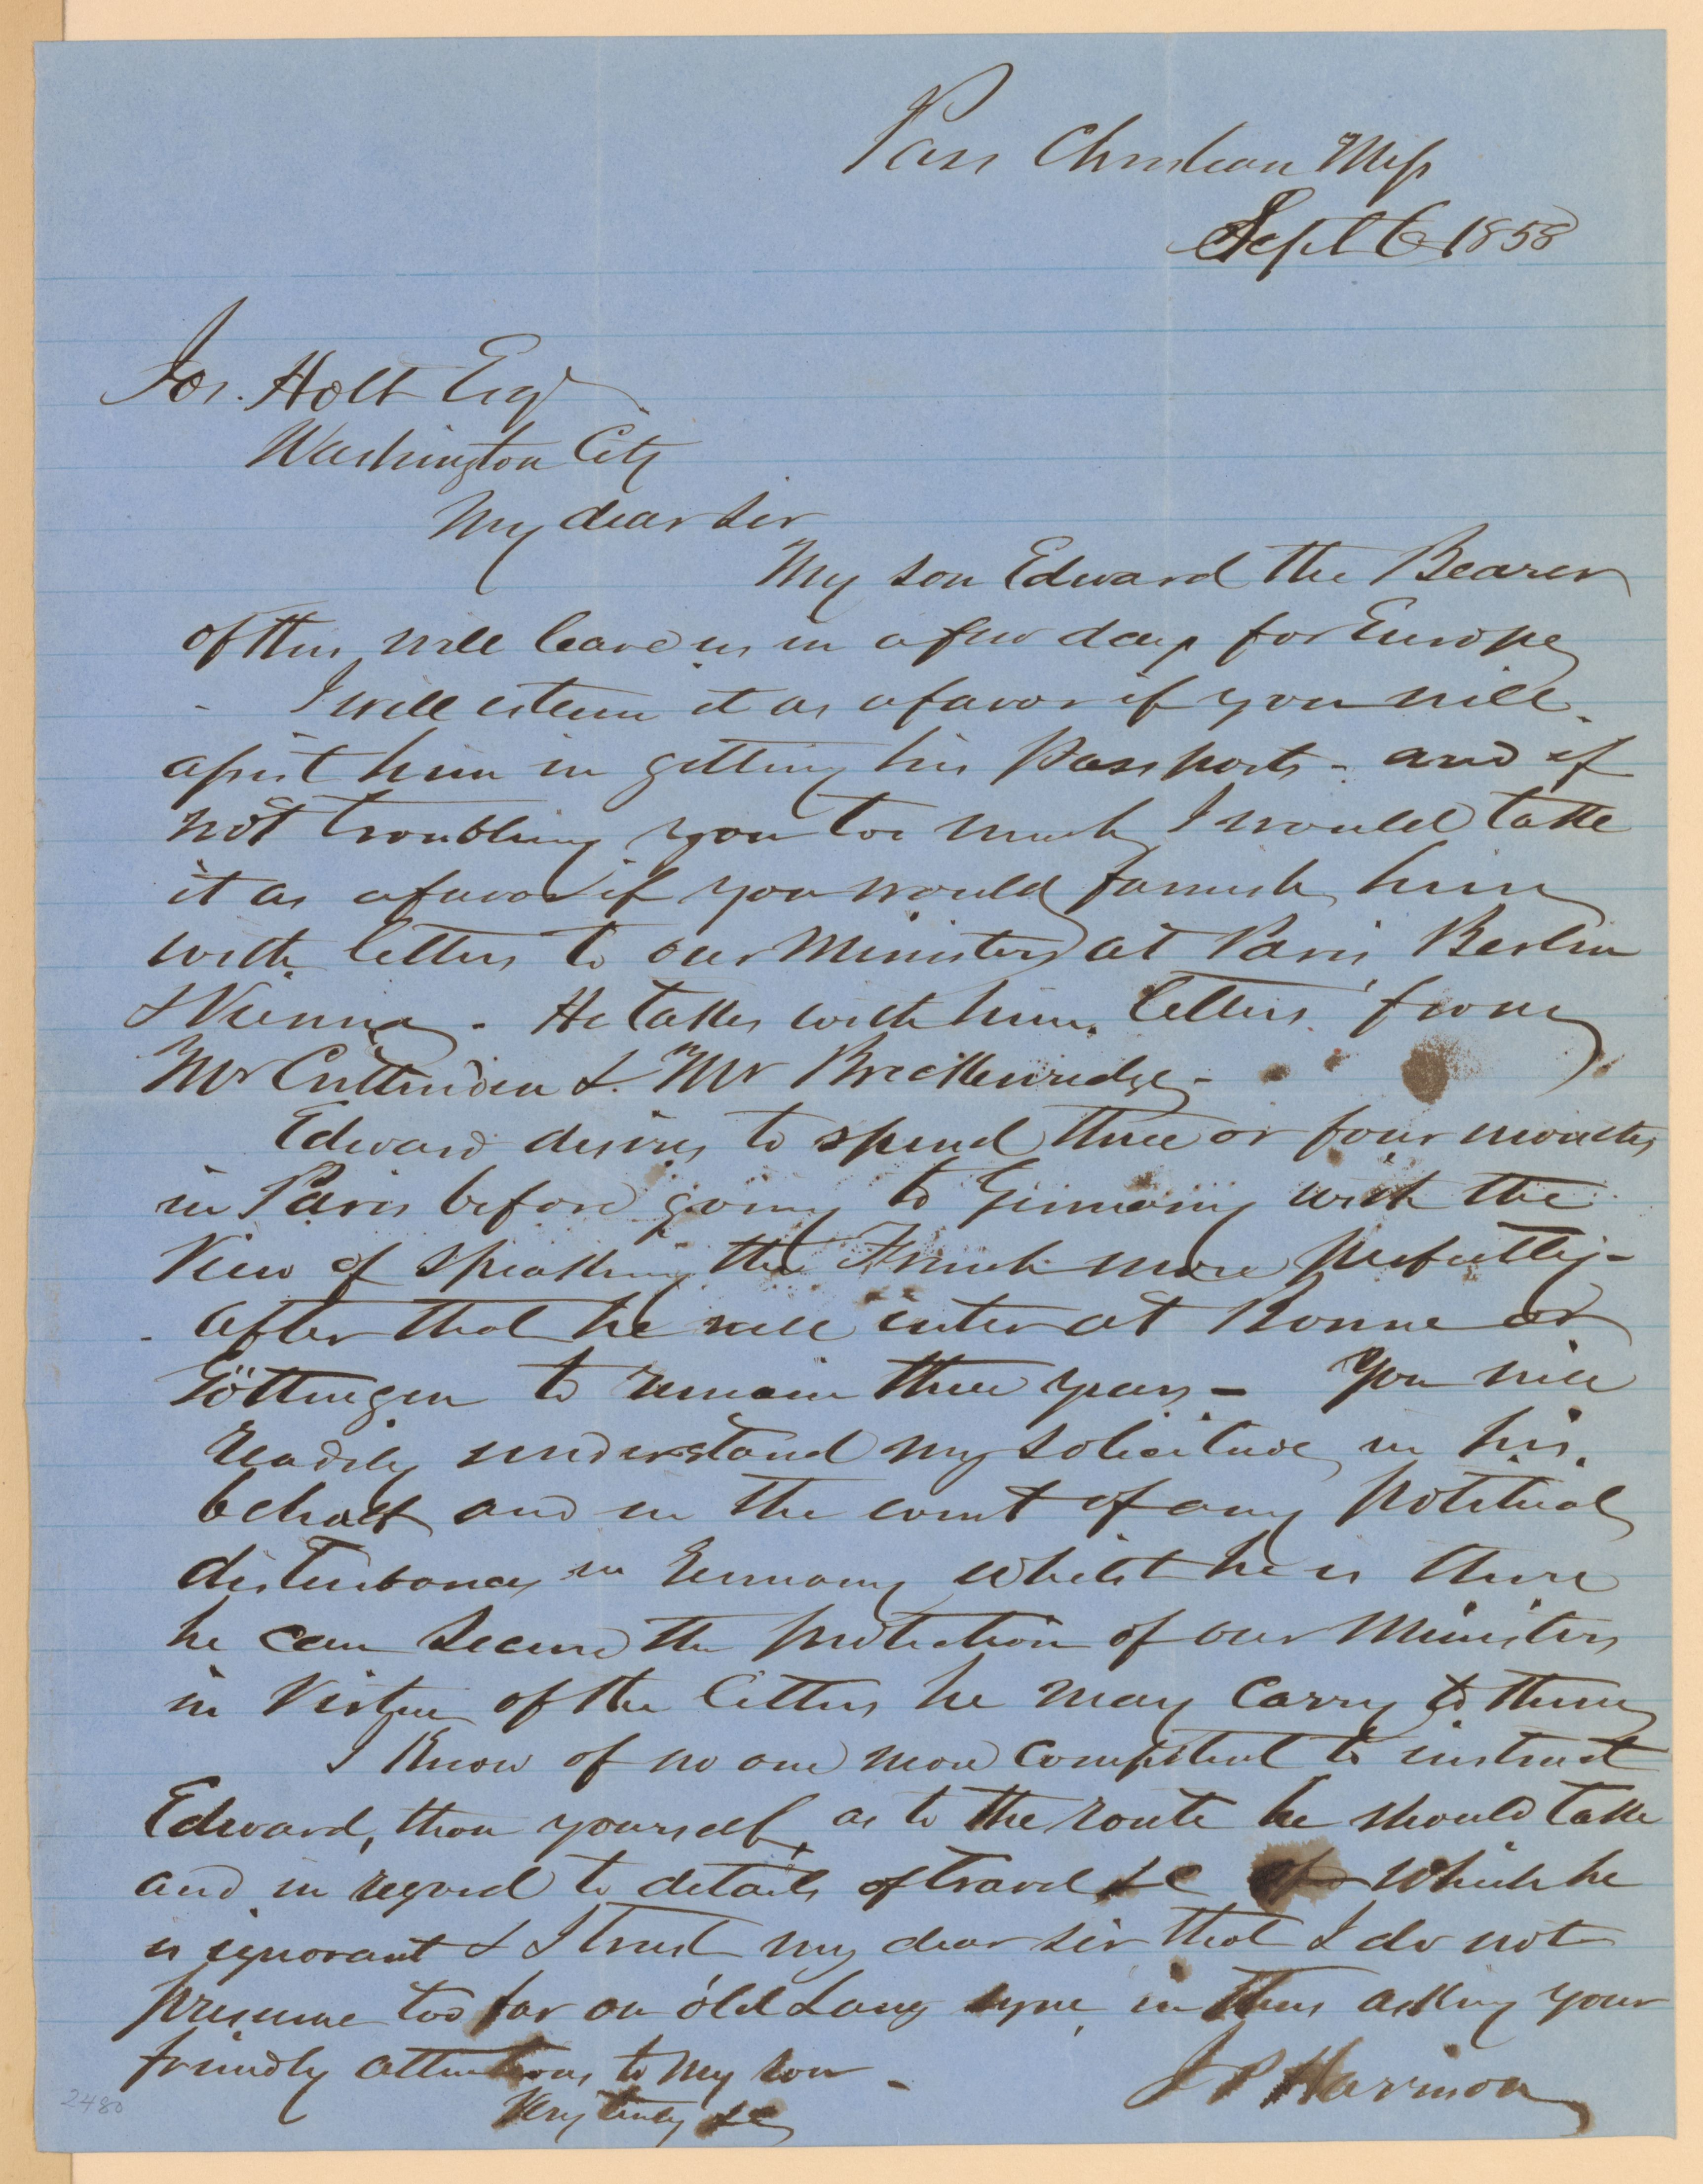 Pass Christian Miss
Sept 6 1858
Jos. Holt Esq
Washington City
My dear Sir
My son Edward the Bearer
of this, will leave us in a few days for Europe
- I will esteem it as a favor if you will
assist him in getting his Passports - and if
not troubling you too much I would take
it as a favor if you would furnish him
with letters to our Ministers at Paris Berlin
& Vienna - He takes with him letters from
Mr Crittenden & Mr Breckenridge -
Edward desires to spend three or four months
in Paris before going to Germany with the
View of speaking the French more perfectly -
- after that he will enter at Bonne or
Göttingen to remain three years - You will
readily understand my solicitude in his
behalf and in the event of any political
disturbances in Germany whilst he is there
he can secure the protection of our Ministers
in Virtue of the letters he may carry to them
I know of no one more competent to instruct
Edward, than yourself, as to the route he should take
and in regard to details of travel &c of which he
is ignorant & I trust my dear sir that I do not
presume too far on old Lang syne in thus asking your
friendly attentions to my son -
Very truly &c
J P Harrison
2480